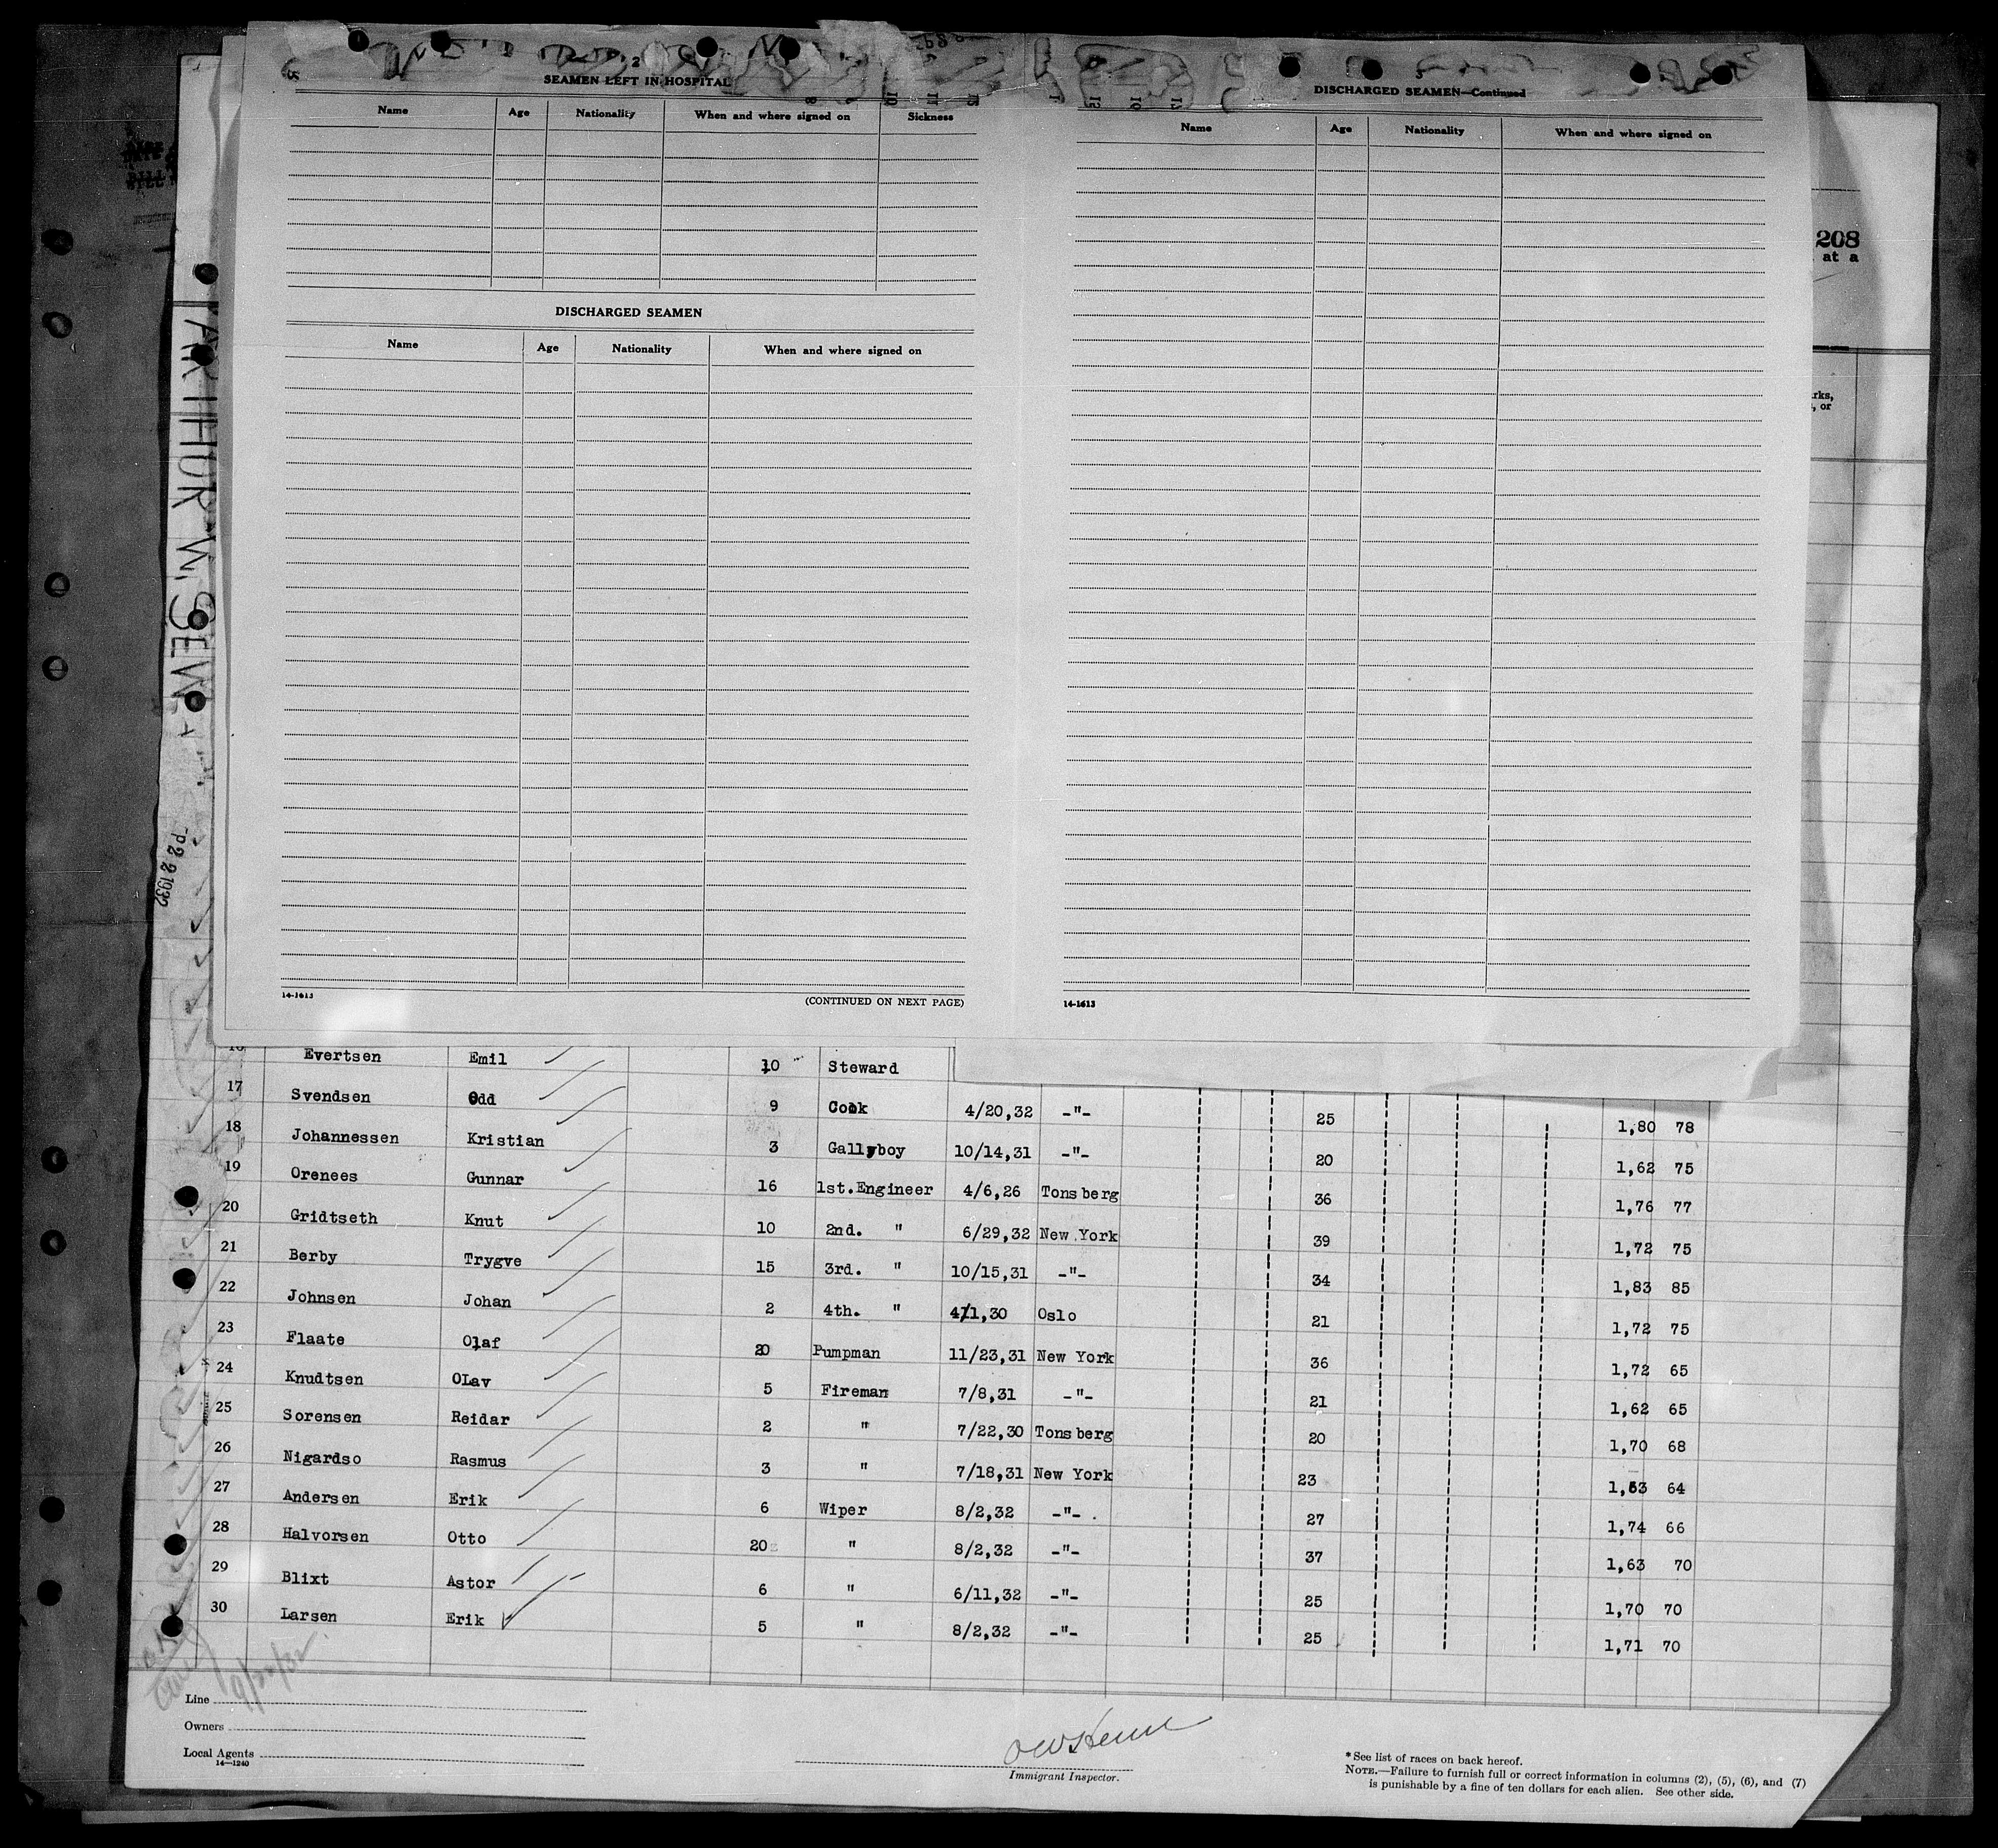 2
SEAMEN LEFT IN HOSPITAL
Name Age Nationality When and where signed on Sickness
DISCHARGED SEAMEN
Name Age Nationality When and where signed on
14-1613 (CONTINUED ON NEXT PAGE)
3
DISCHARGED SEAMEN—Continued
Name Age Nationality When and where signed on
14-1613
208
at a
rks,
, or
ARTHUR W. SEW
P 2 2 1932
Evertsen Emil 10 Steward
17 Svendsen Odd 9 Cook 4/20,32 -"- 25 1,80 78
18 Johannessen Kristian 3 Gallyboy 10/14,31 -"- 20 1,62 75
19 Orenees Gunnar 16 1st.Engineer 4/6,26 Tonsberg 36 1,76 77
20 Gridtseth Knut 10 2nd. " 6/29,32 New York 39 1,72 75
21 Berby Trygve 15 3rd. " 10/15,31 -"- 34 1,83 85
22 Johnsen Johan 2 4th. " 4/1,30 Oslo 21 1,72 75
23 Flaate Olaf 20 Pumpman 11/23,31 New York 36 1,72 65
24 Knudtsen OLav 5 Fireman 7/8,31 -"- 21 1,62 65
25 Sorensen Reidar 2 " 7/22,30 Tonsberg 20 1,70 68
26 Nigardso Rasmus 3 " 7/18,31 New York 23 1,63 64
27 Andersen Erik 6 Wiper 8/2,32 -"- . 27 1,74 66
28 Halvorsen Otto 20 " 8/2,32 -"- 37 1,63 70
29 Blixt Astor 6 " 6/11,32 -"- 25 1,70 70
30 Larsen Erik 5 " 8/2,32 -"- 25 1,71 70
9/22/32
Line
Owners
Local Agents
14—1240
Immigrant Inspector.
*See list of races on back hereof.
NOTE.—Failure to furnish full or correct information in columns (2), (5), (6), and (7)
is punishable by a fine of ten dollars for each alien. See other side.